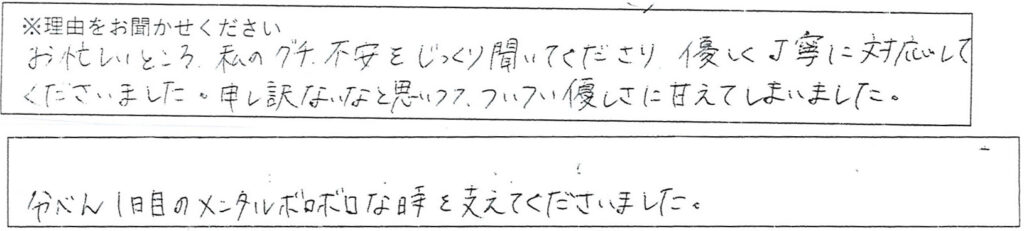 ※理由をお聞かせください
お忙しいところ、私のグチ、不安をじっくり聞いてくださり、優しく丁寧に対応して
くださいました。申し訳ないなと思いつつ、ついつい優しさに甘えてしまいました。
分べん1日目のメンタルボロボロな時を支えてくださいました。